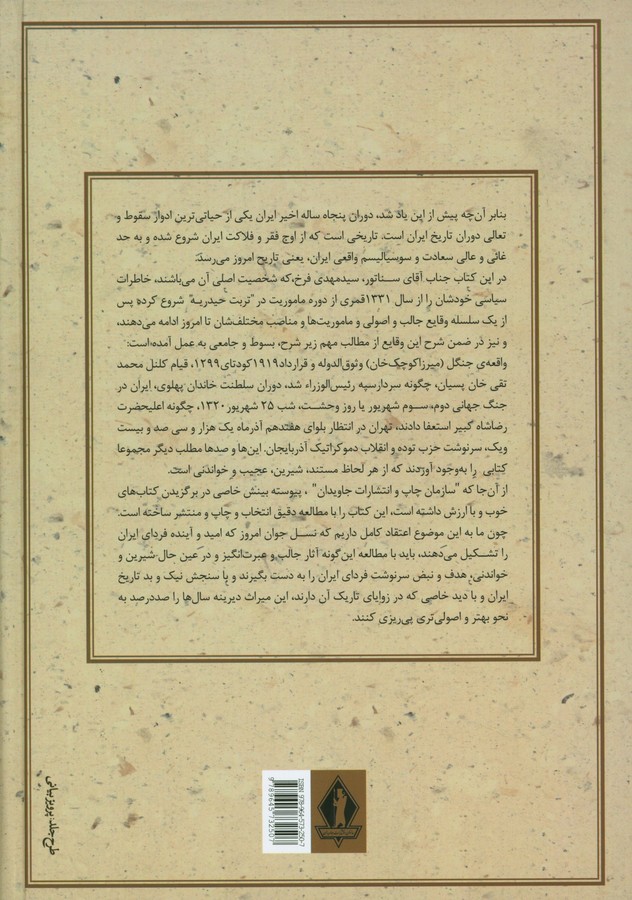 بنابر آن‌چه پیش از این یاد شد، دوران پنجاه ساله اخیر ایران یکی از حیاتی‌ترین ادوار سقوط و
تعالی دوران تاریخ ایران است. تاریخی است که از اوج فقر و فلاکت ایران شروع شده و به حد
غائی و عالی سعادت و سوسیالیسم واقعی ایران، یعنی تاریخ امروز می‌رسد.
در این کتاب جناب آقای سناتور، سیدمهدی فرخ، که شخصیت اصلی آن می‌باشند، خاطرات
سیاسی خودشان را از سال ۱۳۳۱قمری از دوره ماموریت در "تربت حیدریه" شروع کرده پس
از یک سلسله وقایع جالب و اصولی و ماموریت‌ها و مناصب مختلف‌شان تا امروز ادامه می‌دهند،
و نیز در ضمن شرح این وقایع از مطالب مهم زیر شرح، بسوط و جامعی به عمل آمده است:
واقعه‌ی جنگل (میرزاکوچک‌خان) وثوق‌الدوله و قرارداد۱۹۱۹کودتای۱۲۹۹، قیام کلنل محمد
تقی خان پسیان، چگونه سردارسپه رئیس‌الوزراء شد، دوران سلطنت خاندان پهلوی، ایران در
جنگ جهانی دوم، سوم شهریور یا روز وحشت، شب ۲۵ شهریور ۱۳۲۰، چگونه اعلیحضرت
رضاشاه کبیر استعفا دادند، تهران در انتظار بلوای هفتدهم آذرماه یک هزار و سی صد و بیست
ویک، سرنوشت حزب توده و انقلاب دموکراتیک آذربایجان. این‌ها و صدها مطلب دیگر مجموعا
کتابی را به‌وجود آوردند که از هر لحاظ مستند، شیرین، عجیب و خواندنی است.
از آن‌جا که "سازمان چاپ و انتشارات جاویدان" ، پیوسته بینش خاصی در برگزیدن کتاب‌های
خوب و باارزش داشته است، این کتاب را با مطالعه دقیق انتخاب و چاپ و منتشر ساخته است.
چون ما به این موضوع اعتقاد کامل داریم که نسل جوان امروز که امید و آینده فردای ایران
را تشکیل می‌دهند، باید با مطالعه این‌گونه آثار جالب و عبرت‌انگیز و در عین حال شیرین و
خواندنی، هدف و نبض سرنوشت فردای ایران را به دست بگیرند و با سنجش نیک و بد تاریخ
ایران و با دید خاصی که در زوایای تاریک آن دارند، این میراث دیرینه سال‌ها را صددرصد به
نحو بهتر و اصولی‌تری پی‌ریزی کنند.
طرح جلد: پرویز بیانی
ISBN: 978-964-5732-50-7
9 789645 732507